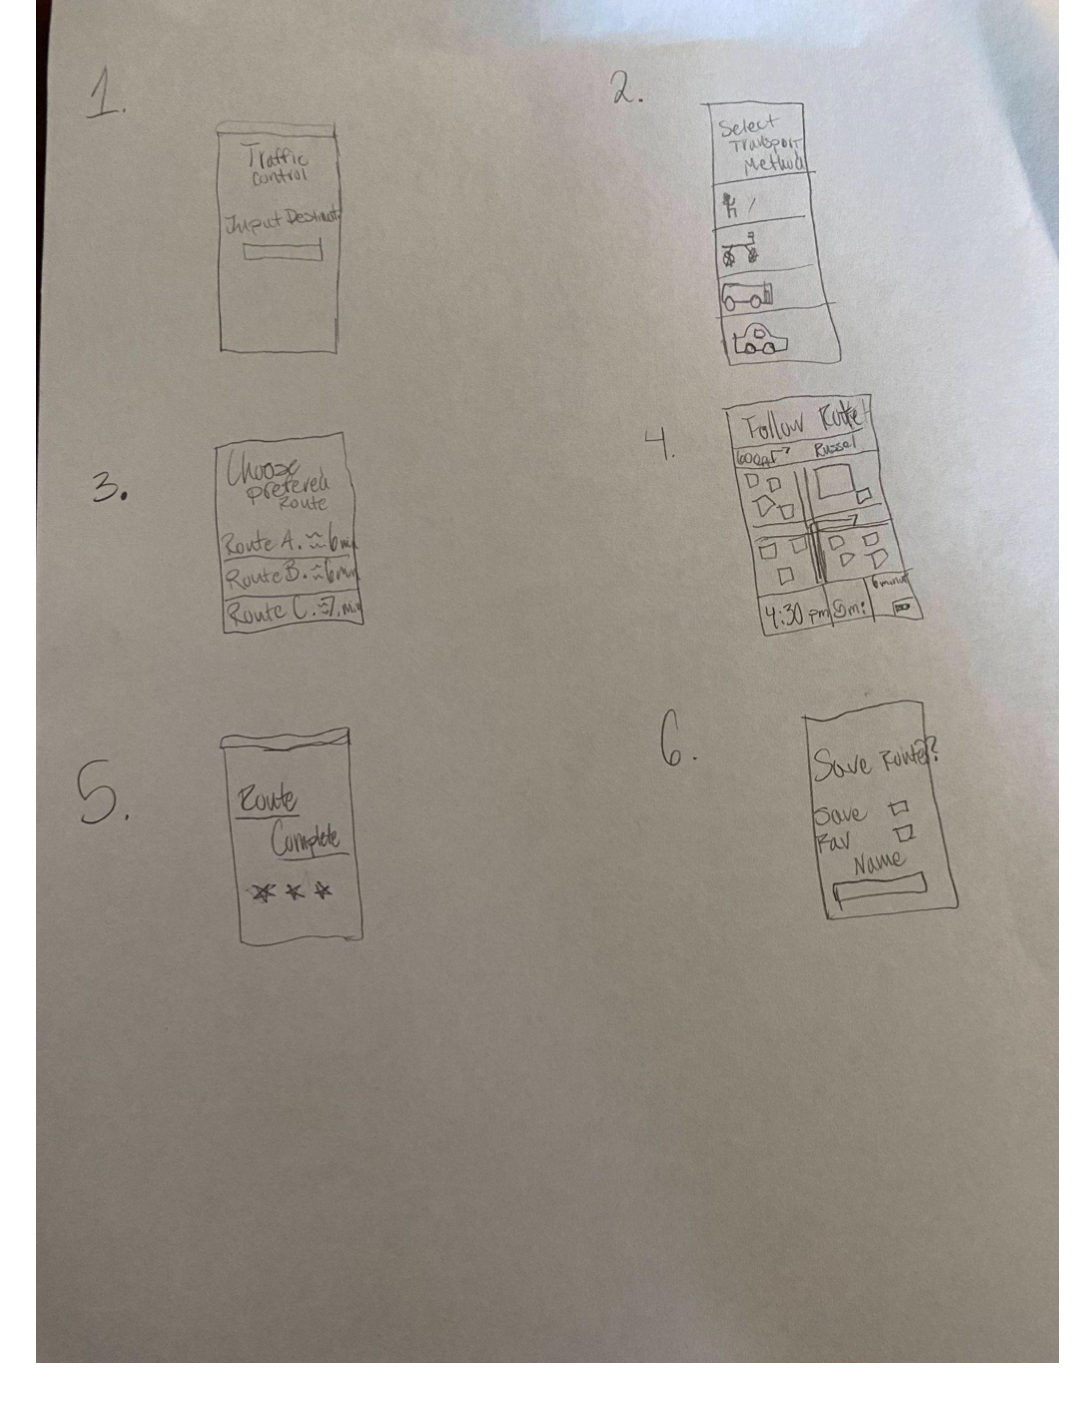 1.
Traffic
Control
Input Destinat
2.
Select
Transport
Method
3.
Choose
prefered
Route
Route A. ≈ 6 min
Route B. ≈ 6 min
Route C. ≈ 7. min
4.
Follow Route
600 ft Russel
4:30 pm 8 mi 6 minut
5.
Route
Complete
6.
Save Route?
Save
Fav
Name